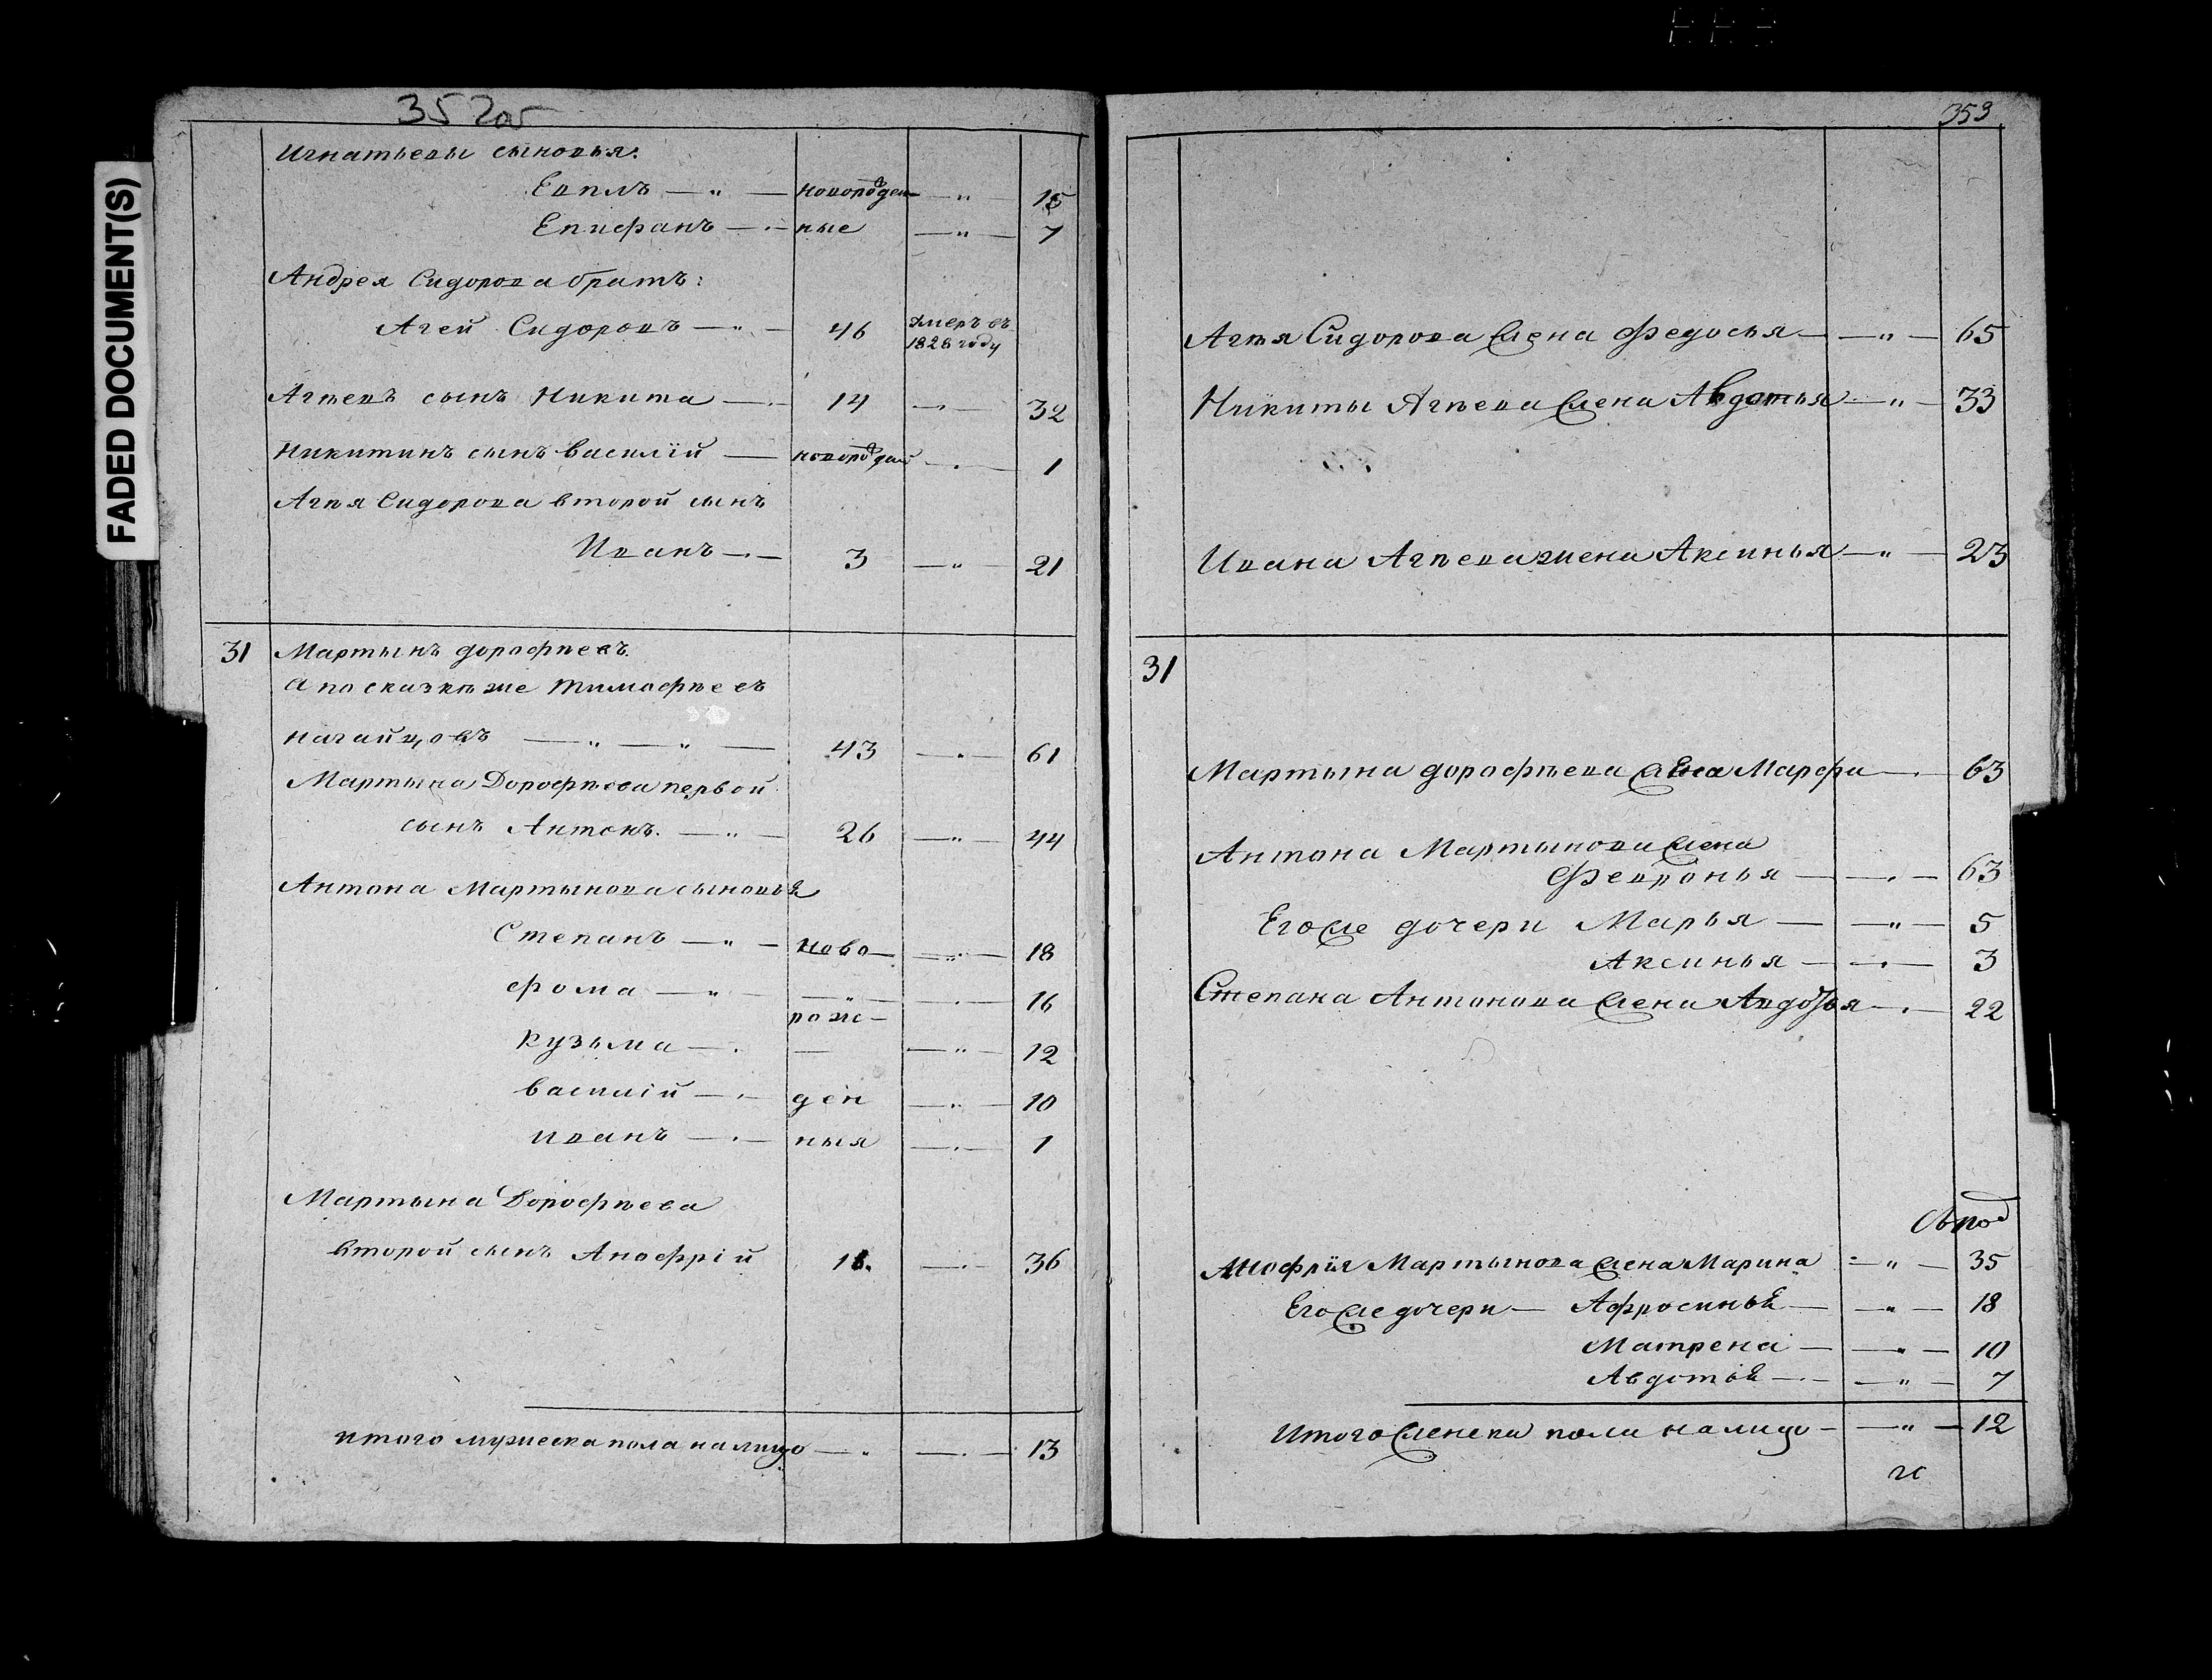 FADED DOCUMENT(S)
352об
Игнатьевы сыновья:
Евплъ — " — новорожден — " — 15
Епифанъ — " — ные — " — 7
Андрея Сидорова братъ:
Агей Сидоровъ — " — 46 умеръ въ 1826 году
Агѣевъ сынъ Никита — 14 — " — 32
Никитинъ сынъ василїй — новорожден — " — 1
Агѣя Сидорова второй сынъ
Иванъ — " — 3 — " — 21
31 Мартынъ дорофѣевъ
а по сказкѣ же Тимофѣевъ
нагайцовъ — " — " — 43 — " — 61
Мартына Дорофѣева первой
сынъ Антонъ. — " — 26 — " — 44
Антона Мартынова сыновья
Степанъ — " — ново — " — 18
фома — " — — " — 16
рож —
кузьма — " — — " — 12
василій — " — ден — " — 10
иванъ — " — ныя — " — 1
Мартына Дорофѣева
второй сынъ Анофрій 18. — " — 36
итого мужеска пола налицо — " — " — 13
353
Агѣя Сидорова жена Федосья — " — 65
Никиты Агѣева жена Авдотья — " — 33
Ивана Агѣева жена Аксинья — " — 23
31
Мартына дорофѣева жена Марфа — " — 63
Антона Мартынова жена
Февронья — " — 63
Его же дочери Марья — " — 5
Аксинья — " — 3
Степана Антонова жена Авдотья — " — 22
Анофрїя Мартынова жена Марина — " — 35
Его же дочери — Афросинья — " — 18
Матрена — " — 10
Авдотья — " — 7
Итого женска пола налицо — " — 12